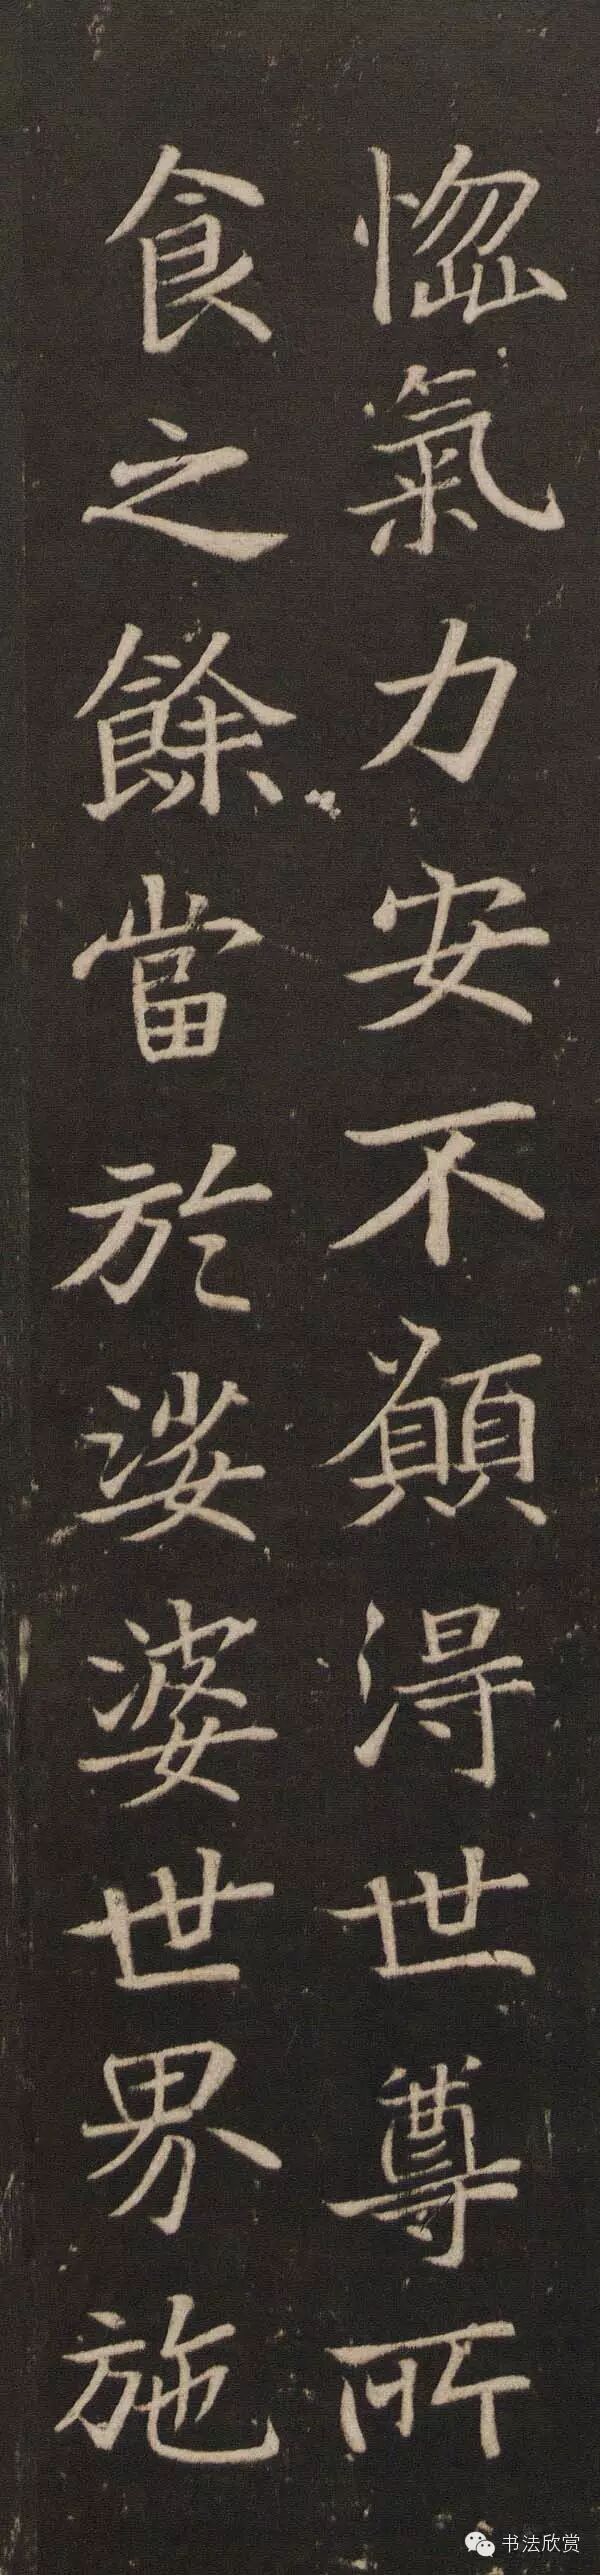 惱氣力安不願得世尊所
食之餘當於娑婆世界施
书法欣赏